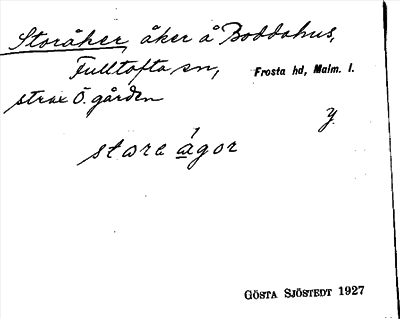 Storåker, åker å Boddahus,
Fulltofta sn, Frosta hd, Malm. l.
strax Ö. gården
y.
stora ágor
GÖSTA SJÖSTEDT 1927